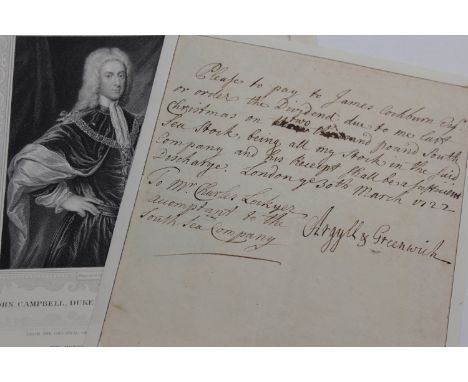 Please to pay to James Cockburn Esqr
or order the Dividend due to me last
Christmas on two thousand pound South
Sea Stock being all my Stock in the said
Company and his Receipt shall be a sufficient
Discharge. London ye 30th March 1722
To Mr Charles Lockyer
accomptant to the
South Sea Company
Argyll & Greenwich
OHN CAMPBELL, DUKE
FROM THE ORIGINAL OF